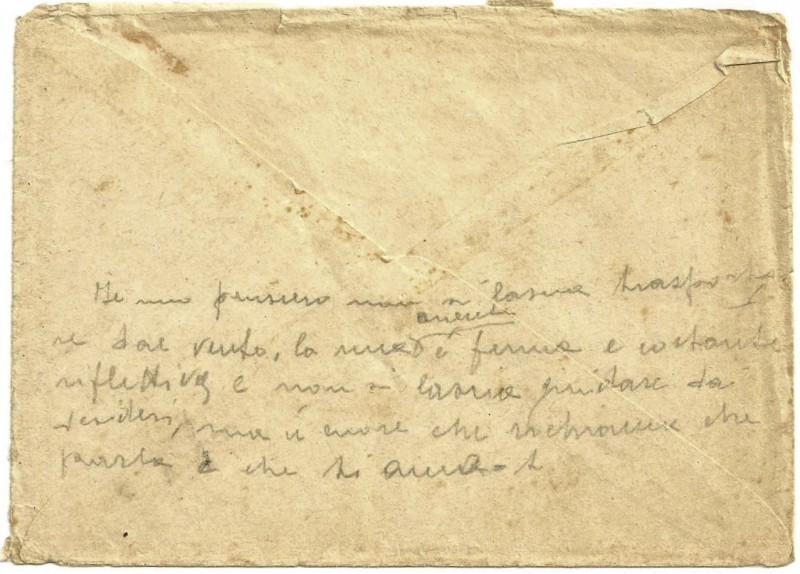 Il mio pensiero non si lascia trasporta
re dal vento, la mia mente è ferma e costante
riflettiva e non si lascia guidare da
desideri, ma il cuore che richiama che
parla e che ti ama